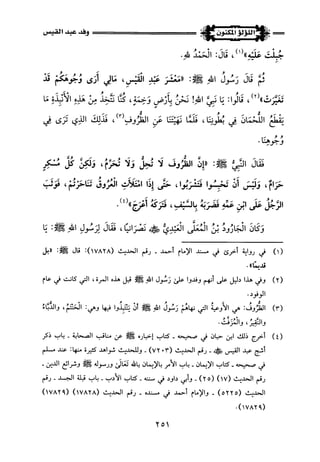 اللؤلؤ المكنون
وفد عبد القيس
جُبِلْتَ عَلَيْهِ»(١)، قَالَ: الْحَمْدُ لِلَّهِ.
ثُمَّ قَالَ رَسُولُ اللهِ ﷺ: «مَعْشَرَ عَبْدِ الْقَيْسِ، مَالِي أَرَى وُجُوهَكُمْ قَدْ
تَغَيَّرَتْ»(٢)، قَالُوا: يَا نَبِيَّ اللهِ! نَحْنُ بِأَرْضٍ وَخِمَةٍ، كُنَّا نَتَّخِذُ مِنْ هَذِهِ الْأَنْبِذَةِ مَا
يَقْطَعُ اللُّحْمَانَ فِي بُطُونِنَا، فَلَمَّا نَهَيْتَنَا عَنِ الظُّرُوفِ(٣)، فَذَلِكَ الَّذِي تَرَى فِي
وُجُوهِنَا.
فَقَالَ النَّبِيُّ ﷺ: «إِنَّ الظُّرُوفَ لَا تُحِلُّ وَلَا تُحَرِّمُ، وَلَكِنْ كُلُّ مُسْكِرٍ
حَرَامٌ، وَلَيْسَ أَنْ تَحْبِسُوا فَتَشْرَبُوا، حَتَّى إِذَا امْتَلَأَتِ الْعُرُوقُ تَنَاحَرْتُمْ، فَوَثَبَ
الرَّجُلُ عَلَى ابْنِ عَمِّهِ فَضَرَبَهُ بِالسَّيْفِ، فَتَرَكَهُ أَعْرَجَ»(٤).
وَكَانَ الْجَارُودُ بْنُ الْمُعَلَّى الْعَبْدِيُّ نَصْرَانِيًّا، فَقَالَ لِرَسُولِ اللهِ ﷺ: يَا
(١) في رواية أخرى في مسند الإمام أحمد - رقم الحديث (١٧٨٢٨): قال ﷺ: «بل
قديمًا».
(٢) وفي هذا دليل على أنهم وفدوا على رَسُول الله ﷺ قبل هذه المرة، التي كانت في عام
الوفود.
(٣) الظُّرُوفُ: هي الأوعيةُ التي نهاهُمْ رَسُول اللهِ ﷺ أنْ يَنْتَبِذُوا فيها وهي: الْحَنْتَمُ، والدُّبَّاءُ
والنَّقِيرُ، والْمُزَفَّتُ.
(٤) أخرج ذلك ابن حبان في صحيحه - كتاب إخباره ﷺ عن مناقب الصحابة - باب ذكر
أشج عبد القيس - رقم الحديث (٧٢٠٣) - وللحديث شواهد كثيرة منها: عند مسلم
في صحيحه - كتاب الإيمان - باب الأمر بالإيمان بالله تَعَالَى ورسوله ﷺ وشرائع الدين -
رقم الحديث (١٧) (٢٥) - وأبي داود في سننه - كتاب الأدب - باب قبلة الجسد - رقم
الحديث (٥٢٢٥) - والإمام أحمد في مسنده - رقم الحديث (١٧٨٢٨) (١٧٨٢٩)
(١٧٨٢٩).
٢٥١